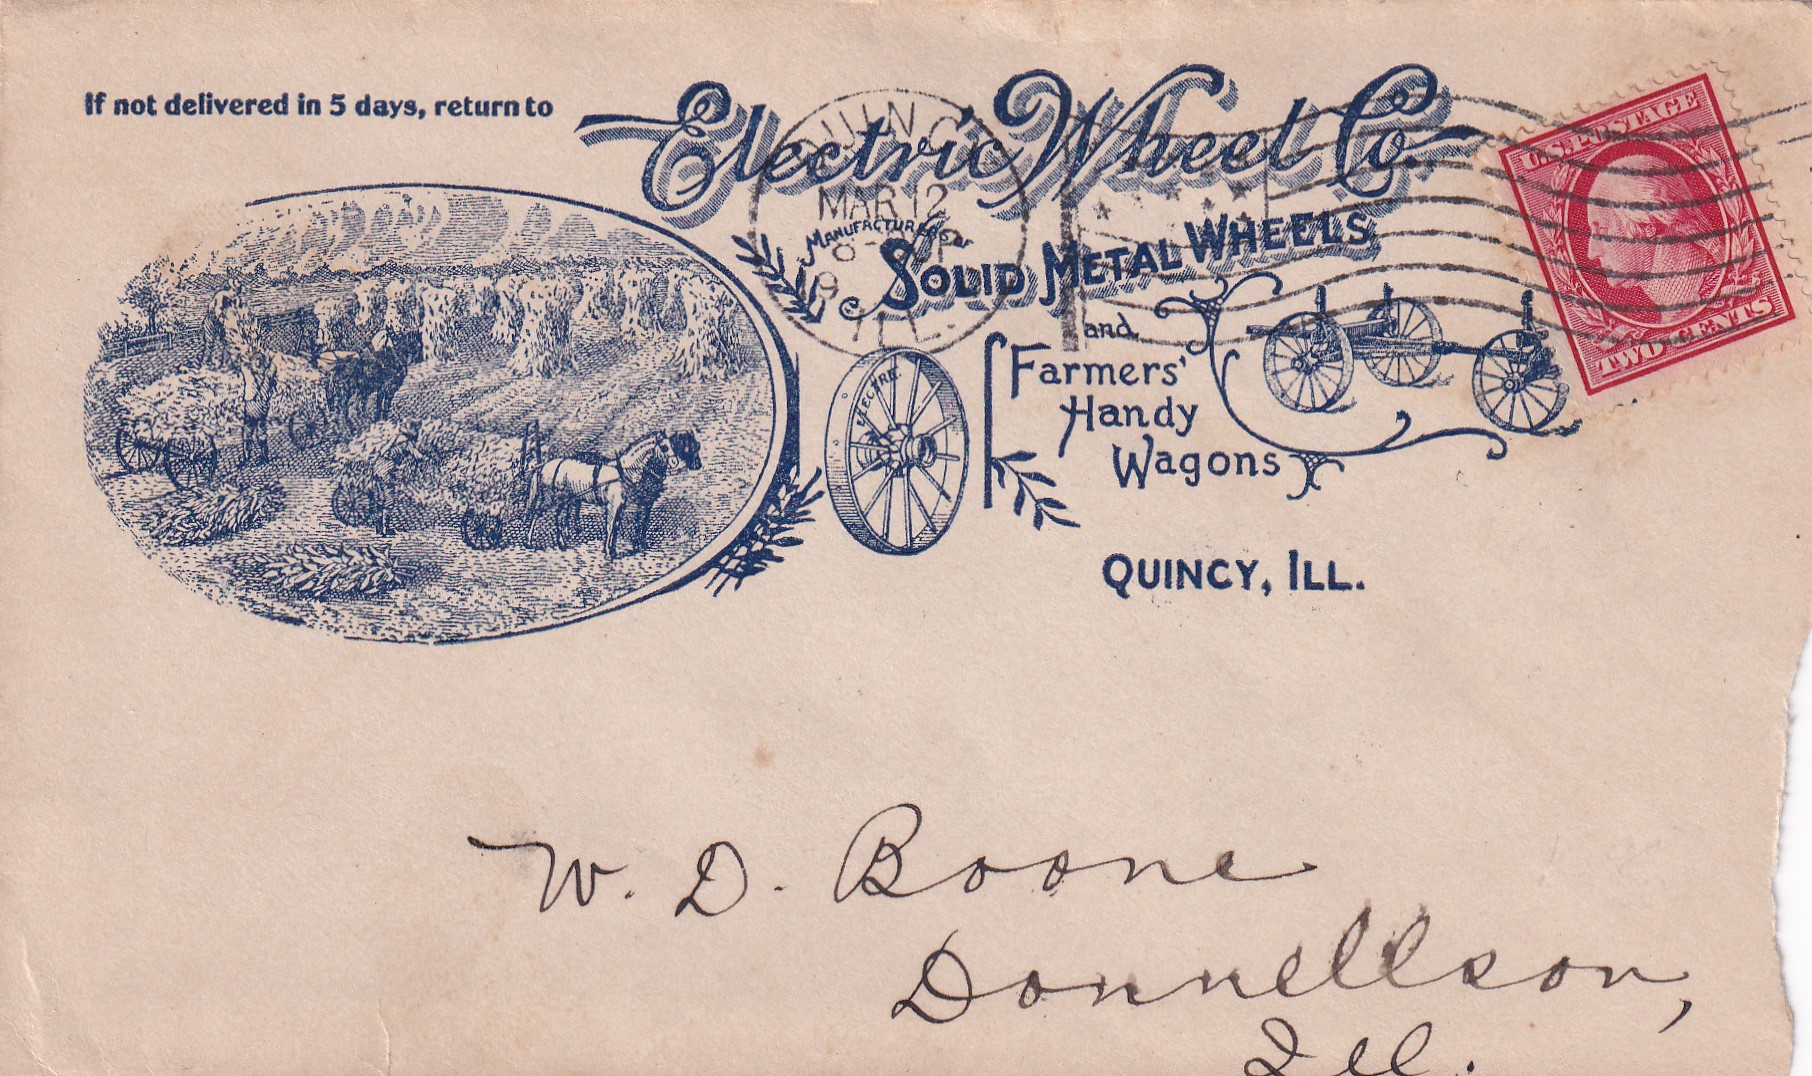 If not delivered in 5 days, return to
Electric Wheel Co.
Manufacturers of
Solid Metal Wheels
and
Farmers'
Handy
Wagons
QUINCY, ILL.
ELECTRIC
QUINCY
MAR 12
ILL.
U.S. POSTAGE
TWO CENTS
W. D. Boone
Donnellson,
Ill.